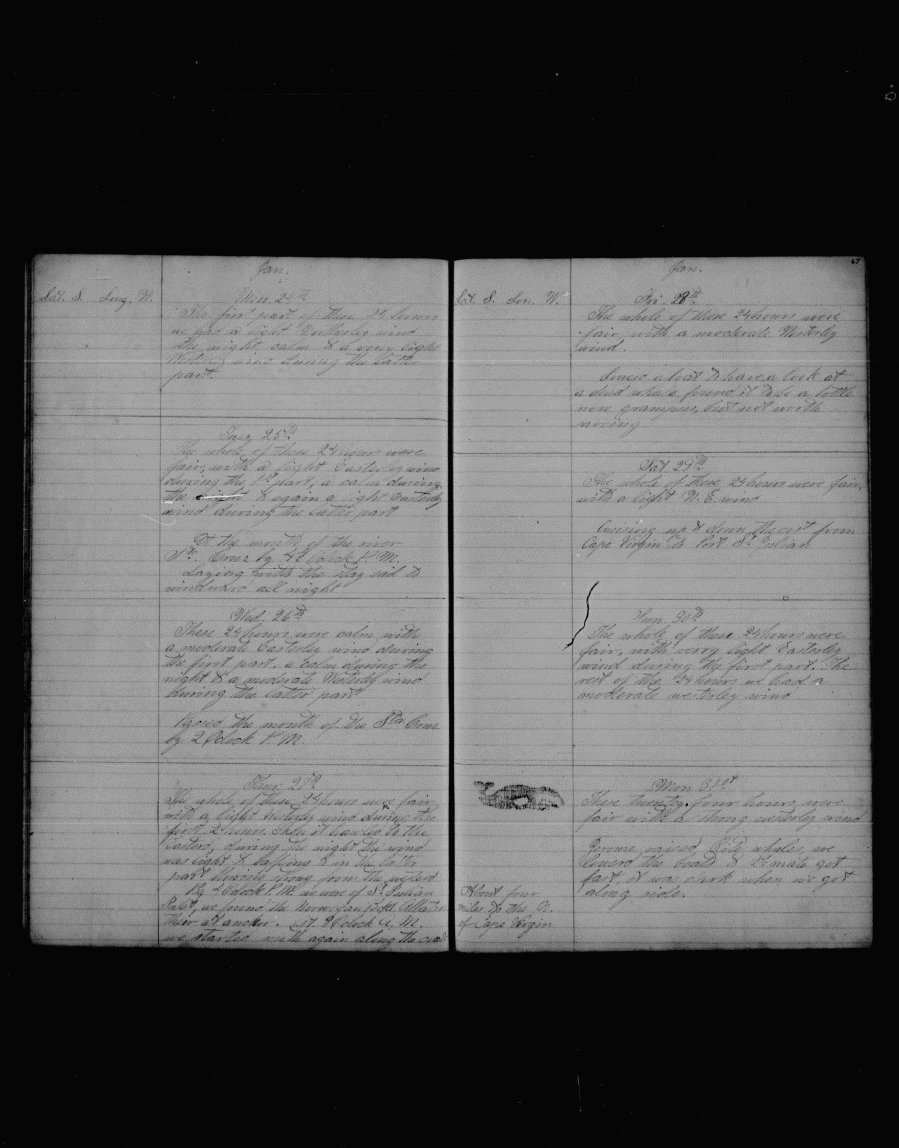 Jan.
Lat. S. Long. W.
Mon. 24th
The first part of these 24 hours
we had a light Westerley wind
the night calm & a very light
Westerley wind during the latter
part.
Tues 25th
The whole of these 24 hours were
fair, with a light Easterley wind
during the 1st part, a calm during
the night & again a light Easterly
wind during the latter part
At the mouth of the river
Sta. Cruz by 4 O Clock P. M.
Laying with the stay sail to
windward all night
Wed. 26th
These 24 hours were calm with
a moderate Easterley wind during
the first part. a calm during the
night & a moderate Westerley wind
during the latter part
the mouth of the Sta Cruz
by 2 Oclock P. M.
Thur 27th
The whole of these 24 hours were fair,
with a light Westerley wind during the
first 2 hours. then it hauled to the
Eastard, during the night the wind
was light & baffling & in the latter
part strong from the westard
By 4 Oclock P. M. we were of St. Julian
we found the Norwegian
ther at anchor. At 9 Oclock A. M.
we started south again along the coast
67
Jan.
Lat. S. Lon. W.
Fri. 28th
The whole of these 24 hours were
fair, with a moderate Westerley
wind.
Lowerd a boat to have a look at
a dead whale found it to be a little
grampus, but not worth
Sat. 29th
The whole of these 24 hours were fair,
with a light N. E. wind
Cruising up & down the cost from
Cape Virgin to Port St. Julian
Sun. 30th
The whole of these 24 hours were
fair, with very light Easterley
wind during the first part. The
rest of the 24 hours we had a
moderate westerley wind
Mon 31st
These twenty four hours were
fair with a strong westerly wind
raised Rite whales, we
lowerd the boats & 2d mate got
fast it was dark when we got
along side.
About four
miles to the N.
of Cape Virgin